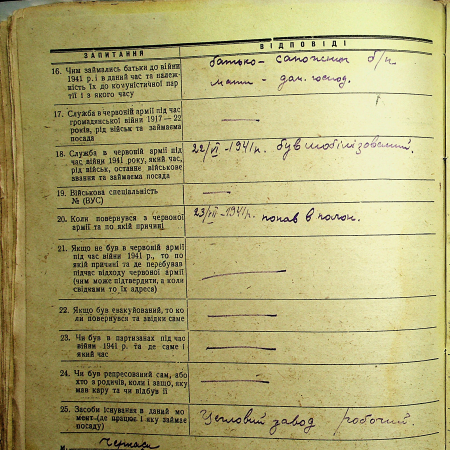 ЗАПИТАННЯ
ВІДПОВІДІ
16. Чим займались батьки до війни
1941 р. і в даний час та належ-
ність їх до комуністичної пар-
тії і з якого часу
батько – сапожник б/п
мати – дом. господ.
17. Служба в червоній армії під час
громадянської війни 1917—22
років, рід військ та займаєма
посада
—
18. Служба в червоній армії під
час війни 1941 року, який час,
рід військ, останнє військове
звання та займаєма посада
22/VI–1941 р. був мобілізований.
19. Військова спеціяльність
№ (ВУС)
—
20. Коли повернувся з червоної
армії та по якій причині
23/VII–1941 р. попав в полон.
21. Якщо не був в червоній армії
під час війни 1941 р., то по
якій причині та де перебував
підчас відходу червоної армії
(чим може підтвердити, а коли
свідками то їх адреса)
—
22. Якщо був евакуйований, то ко-
ли повернувся та звідки саме
—
23. Чи був в партизанах під час
війни 1941 р. та де саме і
який час
—
24. Чи був репресований сам, або
хто з родичів, коли і защо, яку
мав кару та чи відбув її
—
25. Засоби існування в даний мо-
мент (де працює і яку займає
посаду)
Цегловий завод робочий.
Черкаси